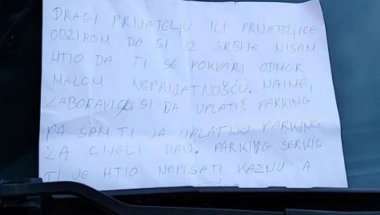 DRAGI PRIJATELJU ILI PRIJATELJICE
OBZIROM DA SI IZ SRBIJE NISAM
HTIO DA TI SE POKVARI ODMOR
MALOM NEPRIJATNOŠĆU. NAIME,
ZABORAVIO SI DA UPLATIŠ PARKING
PA SAM TI JA UPLATIO PARKING
ZA CIJELI DAN. PARKING SERVIS
TI JE HTIO NAPISATI KAZNU A